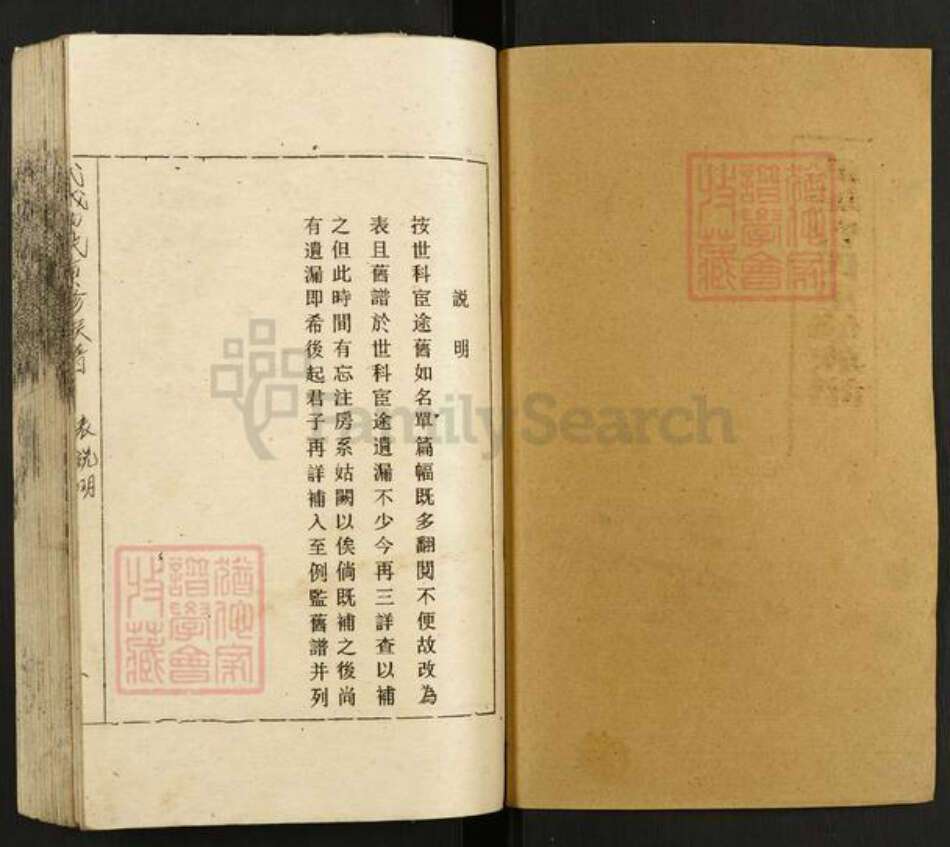 説明
按世科宦途舊如名單篇幅既多翻閱不便故改為
表且舊譜於世科宦途遺漏不少今再三詳查以補
之但此時間有忘注房系姑闕以俟倘既補之後尚
有遺漏即希後起君子再詳補入至例監舊譜并列
表説明
猶他家
譜學會
收藏
猶他家
譜學會
收藏
FamilySearch